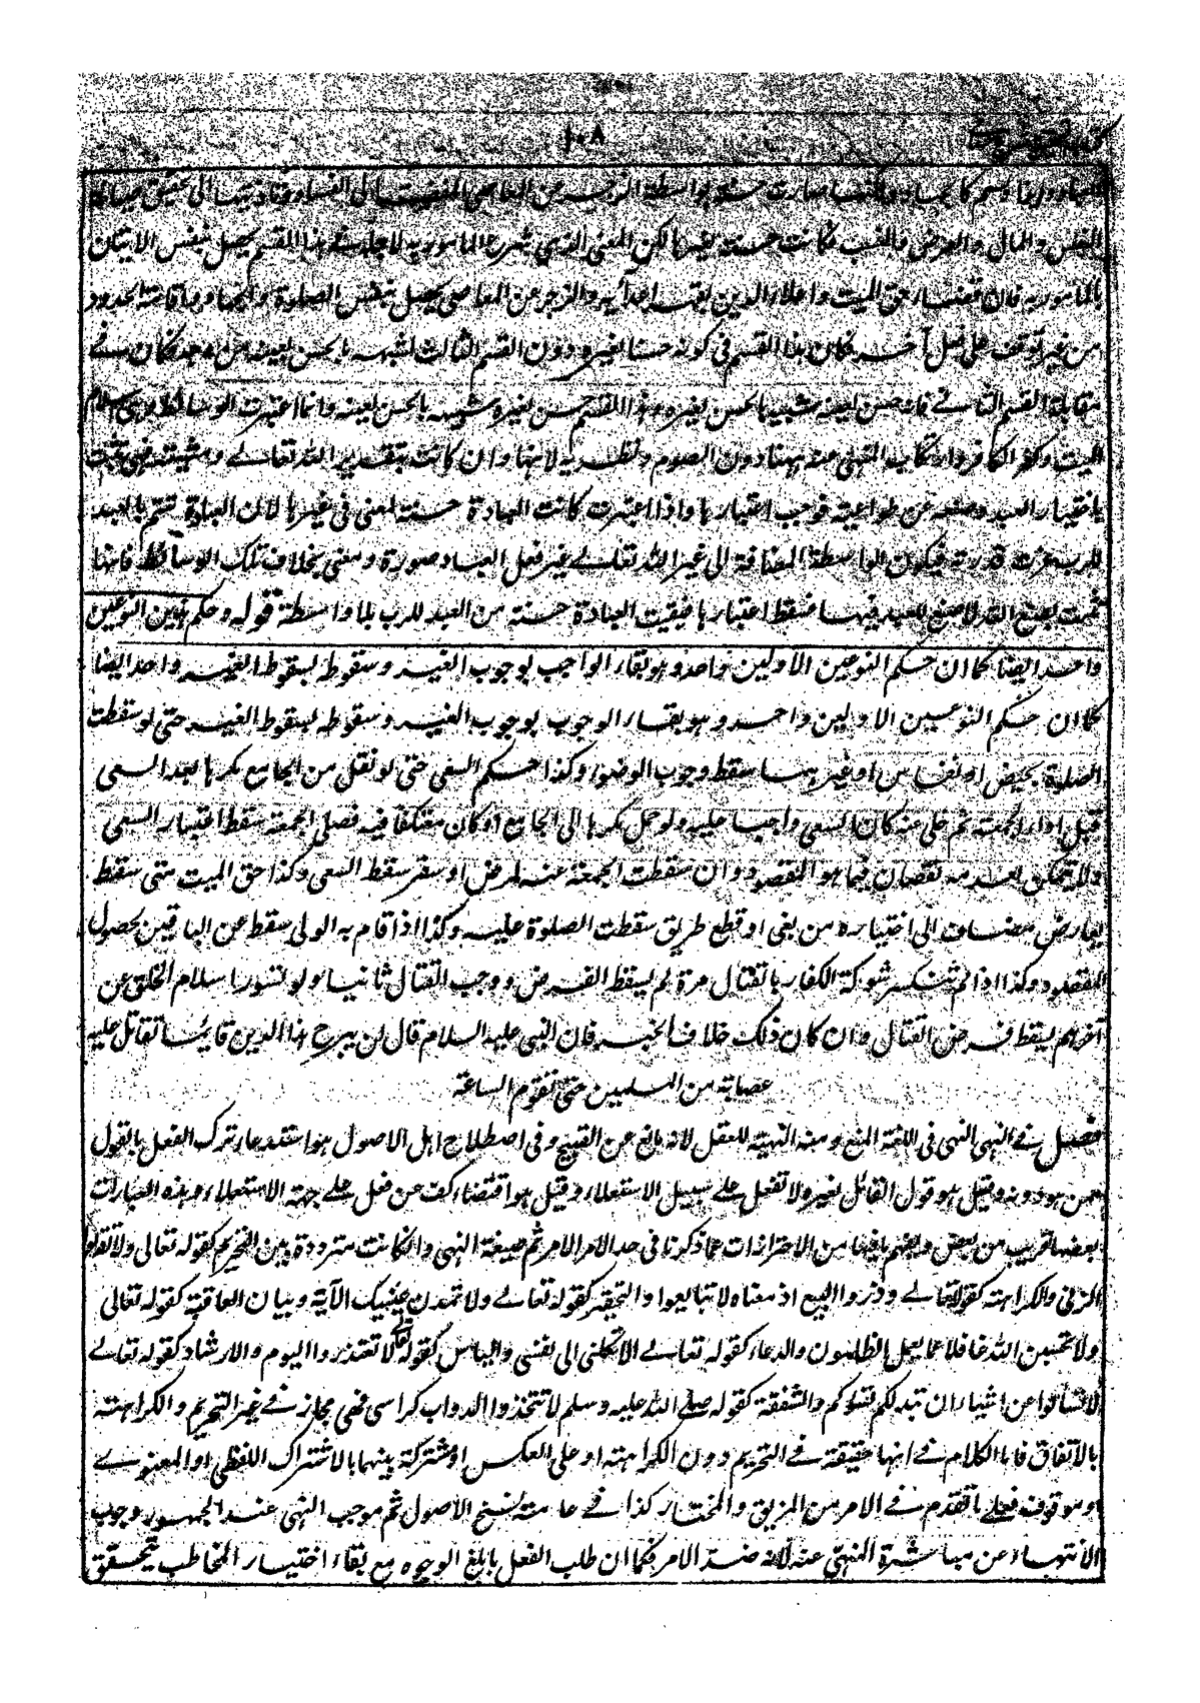 ١٠٨
النفس والمال والعرض والنسب فكانت حسنة لغيرها لكن المعنى الذي شرع المامور به لاجله فى هذا القسم يحصل بنفس الاتيان
بالمامور به فان قضاء حق الميت واعلاء الدين وقهر اعدائه والزجر عن المعاصى يحصل بنفس الصلوة والجهاد واقامة الحدود
من غير توقف على فعل آخر فكان هذا القسم فى كونه حسنا لغيره دون القسم الثالث لشبهه بالحسن لعينه من وجه فكان فى
مقابلة القسم الثانى فانه حسن لعينه شبيه بالحسن لغيره وهذا القسم حسن لغيره شبيه بالحسن لعينه وانما اعتبرت الوسائط وهى اسلام
الميت وكفر الكافر وارتكاب المنهى عنه ههنا دون الصوم ونظيريه لانها وان كانت بتقدير الله تعالى ومشيته فهى تثبت
باختيار العبد وصنعه عن طواعية فوجب اعتبارها واذا اعتبرت كانت العبادة حسنة لمعنى فى غيرها لان العبادة تتم بالعبد
للرب عزت قدرته فيكون الواسطة المضافة الى غير الله تعالى غير فعل العباد صورة ومعنى بخلاف تلك الوسائط فانها
تثبت بصنع الله لا صنع للعبد فيها فسقط اعتبارها فبقيت العبادة حسنة من العبد للرب بلا واسطة قوله وحكم هذين النوعين
واحد ايضا كما ان حكم النوعين الاولين واحد وهو بقاء الواجب بوجوب الغير وسقوطه بسقوط الغير واحد ايضا
كما ان حكم النوعين الاولين واحد وهو بقاء الوجوب بوجوب الغير وسقوطه بسقوط الغير حتى لو سقطت
الصلوة بحيض او نفاس او غيرهما سقط وجوب الوضوء وكذا حكم السعى حتى لو نقل من الجامع مكرها بعد السعى
قبل اداء الجمعة ثم خلى عنه كان السعى واجبا عليه ولو حمل مكرها الى الجامع او كان معتكفا فيه فصلى الجمعة سقط اعتبار السعى
ولا يتمكن بعدمه نقصان فيما هو المقصود وان سقطت الجمعة عنه لمرض او سفر سقط السعى وكذا حق الميت متى سقط
بعارض مضاف الى اختياره من بغى او قطع طريق سقطت الصلوة عليه وكذا اذا قام به الولى سقط عن الباقين لحصول
المقصود وكذا اذا لم تنكسر شوكة الكفار بالقتال مرة لم يسقط الفرض ووجب القتال ثانيا ولو تصور اسلام الخلق عن
آخرهم يسقط فرض القتال وان كان ذلك خلاف الخبر فان النبى عليه السلام قال لن يبرح هذا الدين قائما تقاتل عليه
عصابة من المسلمين حتى تقوم الساعة
فصل فى النهى النهى فى اللغة المنع ومنه النهية للعقل لانه مانع عن القبيح وفى اصطلاح اهل الاصول هو استدعاء ترك الفعل بالقول
ممن هو دونه وقيل هو قول القائل لغيره لا تفعل على سبيل الاستعلاء وقيل هو اقتضاء كف عن فعل على جهة الاستعلاء وهذه العبارات
بعضها قريب من بعض ويفهم ما فيها من الاحترازات عما ذكرنا فى حد الامر ثم صيغة النهى وان كانت مترددة بين التحريم كقوله تعالى ولا تقربوا
الزنى والكراهة كقوله تعالى وذروا البيع اذ معناه لا تبايعوا والتحقير كقوله تعالى ولا تمدن عينيك الآية وبيان العاقبة كقوله تعالى
ولا تحسبن الله غافلا عما يعمل الظالمون والدعاء كقوله تعالى لا تكلنى الى نفسى والياس كقوله تعالى لا تعتذروا اليوم والارشاد كقوله تعالى
لا تسألوا عن اشياء ان تبد لكم تسؤكم والشفقة كقوله صلى الله عليه وسلم لا تتخذوا الدواب كراسى فهى مجاز فى غير التحريم والكراهة
بالاتفاق فاما الكلام فى انها حقيقة فى التحريم دون الكراهة او على العكس او مشتركة بينهما بالاشتراك اللفظى او المعنوى
او موقوفة فعلى ما تقدم فى الامر من المزيف والمختار كذا فى عامة نسخ الاصول ثم موجب النهى عند الجمهور وجوب
الانتهاء عن مباشرة المنهى عنه لانه ضد الامر فكما ان طلب الفعل بابلغ الوجوه مع بقاء اختيار المخاطب يتحقق